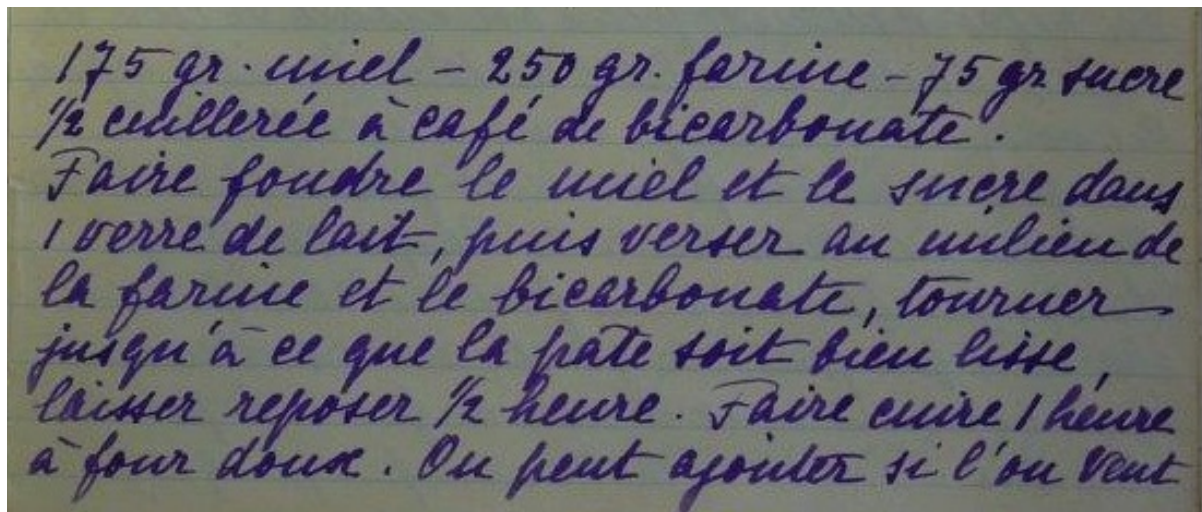 175 gr. miel - 250 gr. farine - 75 gr sucre
1/2 cuillerée à café de bicarbonate.
Faire fondre le miel et le sucre dans
1 verre de lait, puis verser au milieu de
la farine et le bicarbonate, tourner
jusqu'à ce que la pate soit bien lisse,
laisser reposer 1/2 heure. Faire cuire 1 heure
à four doux. On peut ajouter si l'on veut